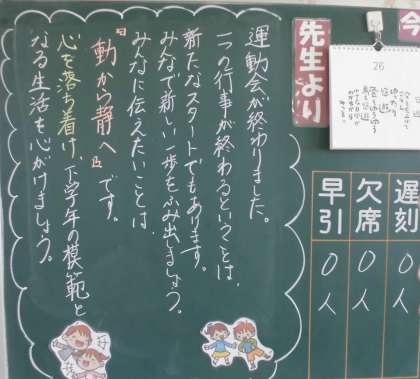 今
先生より
26
遅刻
0人
欠席
0人
早引
0人
運動会が終わりました。
一つの行事が終わるということは、
新たなスタートでもあります。
みなで新しい一歩をふみ出しましょう。
みなに伝えたいことは、
『動から静へ』です。
心を落ち着け、下学年の模範と
なる生活を心がけましょう。